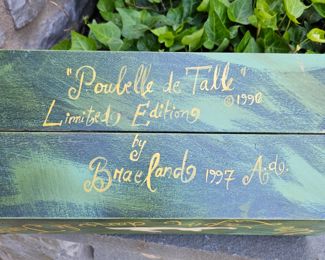 "Poubelle de Table"
©1990
Limited Edition
by
Braeland 1997 A.d.